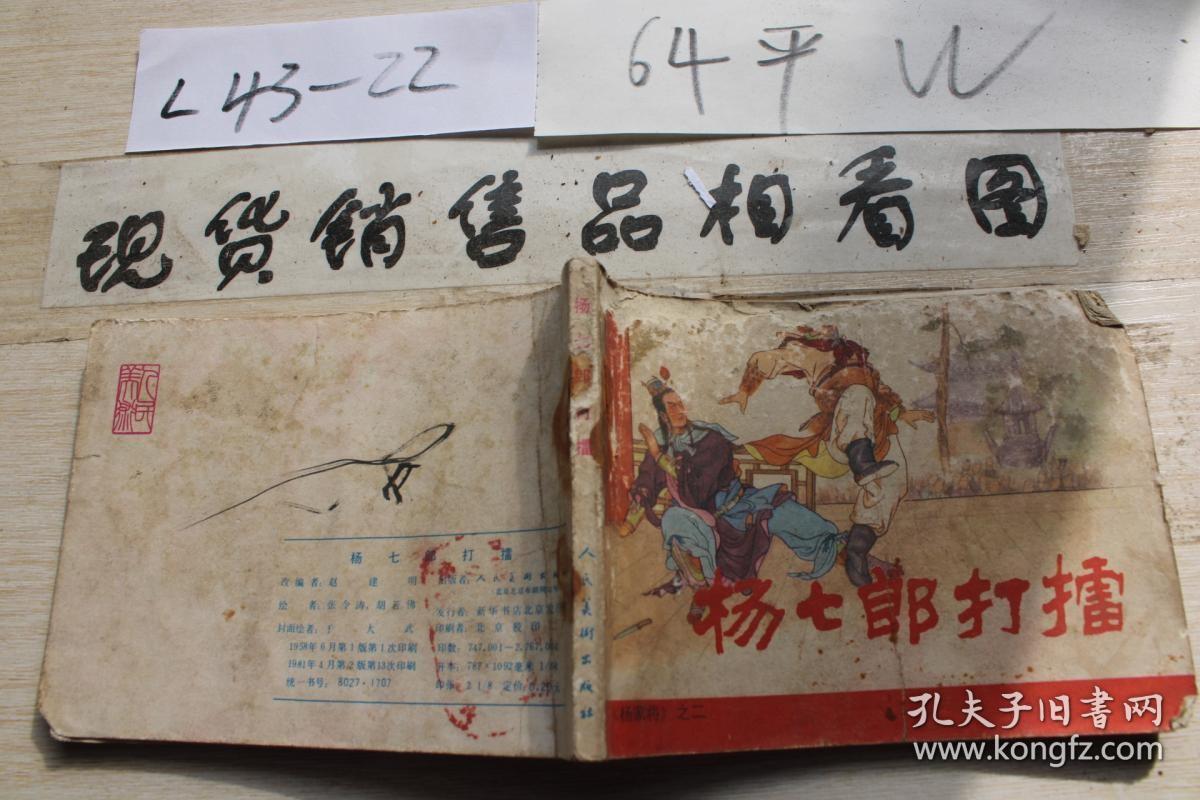 L43-22
64平 W
现货销售品相看图
杨七郎打擂
人民美术出版社
杨七郎打擂
《杨家将》之二
人民美术
杨七郎打擂
改编者：赵建明
绘者：张令涛，胡若佛
封面绘者：于大武
1958年6月第1版第1次印刷
1981年4月第2版第13次印刷
统一书号：8027·1707
出版者：人民美术出版
发行者：新华书店北京发
印刷者：北京胶印
印数：747,001—2,767,0
开本：787·1092毫米 1/64
印张：2 1/8 定价：0.20元
孔夫子旧书网
www.kongfz.com